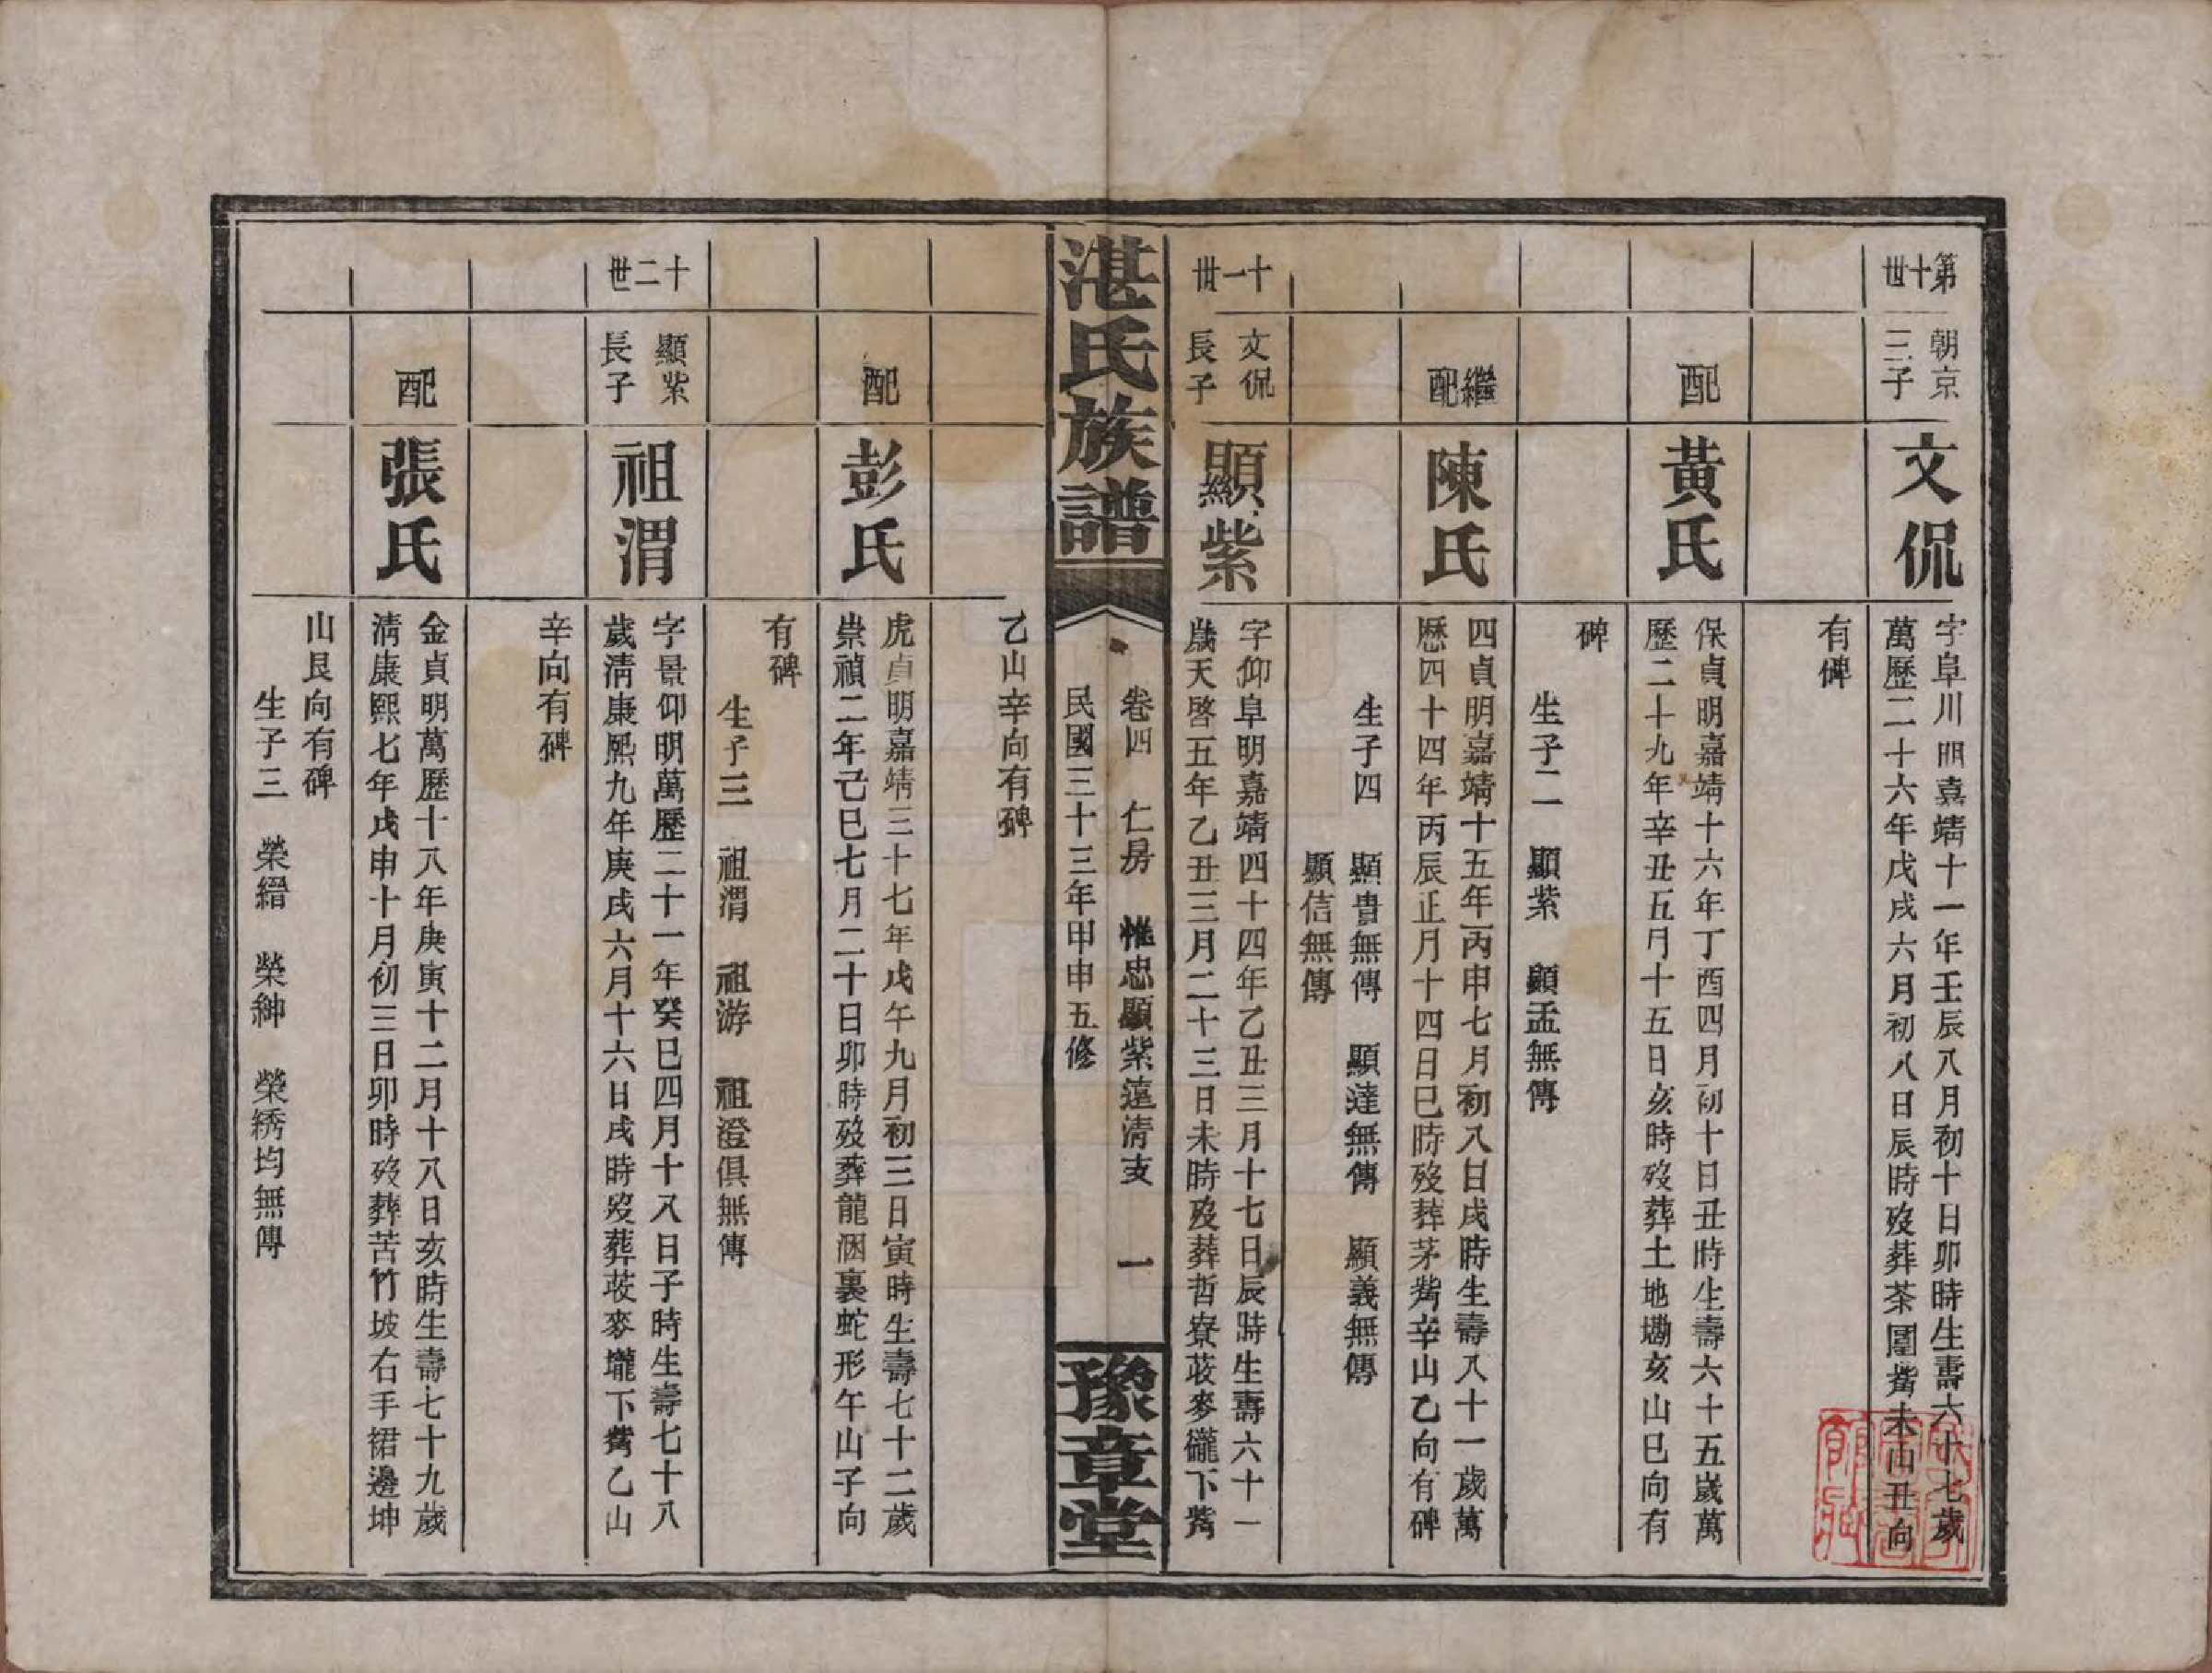 第十世
朝京
三子
文侃
字阜川明嘉靖十一年壬辰八月初十日卯時生壽六十七歲
萬歷二十六年戊戌六月初八日辰時歿葬茶園嘴未山丑向
有碑
配
黃氏
保貞明嘉靖十六年丁酉四月初十日丑時生壽六十五歲萬
歷二十九年辛丑五月十五日亥時歿葬土地墈亥山巳向有
碑
生子二 顯紫 顯孟無傳
繼配
陳氏
四貞明嘉靖十五年丙申七月初八日戌時生壽八十一歲萬
歷四十四年丙辰正月十四日巳時歿葬茅嘴辛山乙向有碑
生子四 顯貴無傳 顯達無傳 顯義無傳
顯信無傳
十一世
文侃
長子
顯紫
字仰阜明嘉靖四十四年乙丑三月十七日辰時生壽六十一
歲天啓五年乙丑三月二十三日未時歿葬哲寮荍麥礲下嘴
湛氏族譜
卷四 仁房 惟忠顯紫遠清支 一
民國三十三年甲申五修
豫章堂
乙山辛向有碑
配
彭氏
虎貞明嘉靖三十七年戊午九月初三日寅時生壽七十二歲
崇禎二年己巳七月二十日卯時歿葬龍洇裏蛇形午山子向
有碑
生子三 祖渭 祖游 祖澄俱無傳
十二世
顯紫
長子
祖渭
字景仰明萬歷二十一年癸巳四月十八日子時生壽七十八
歲清康熙九年庚戌六月十六日戌時歿葬荍麥壠下嘴乙山
辛向有碑
配
張氏
金貞明萬歷十八年庚寅十二月十八日亥時生壽七十九歲
清康熙七年戊申十月初三日卯時歿葬苦竹坡右手裙邊坤
山艮向有碑
生子三 榮縉 榮紳 榮綉均無傳